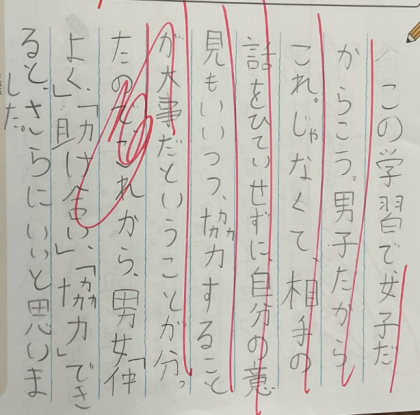 この学習で女子だ
からこう。男子だから
これ。じゃなくて、相手の
話をひていせずに、自分の意
見もいいつつ、協力すること
が大事だということが分。
たのでこれから、男女「仲
よく」「助け合い」「協力」でき
るとさらにいいと思いま
した。